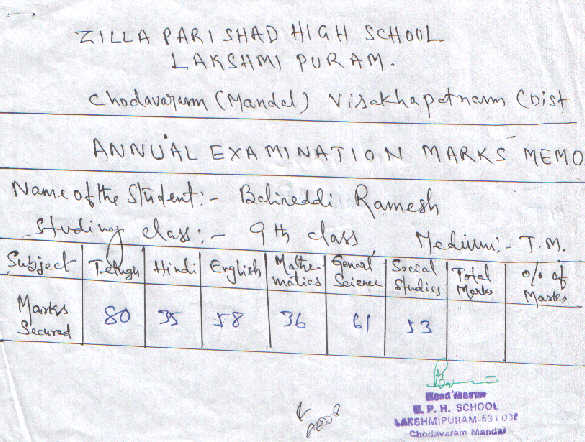 ZILLA PARISHAD HIGH SCHOOL
LAKSHMI PURAM.
Chodavaram (Mandal) Visakhapatnam (Dist
ANNUAL EXAMINATION MARKS MEMO
Name of the Student:- Balireddi Ramesh
Studing class:- 9th class Medium:- T.M.
Subject Telugu Hindi English Mathe-matics General Science Social Studies Total Marks % of Marks
Marks Secured 80 35 58 36 61 53
Head Master
Z. P. H. SCHOOL
LAKSHMIPURAM-531 036
Chodavaram Mandal